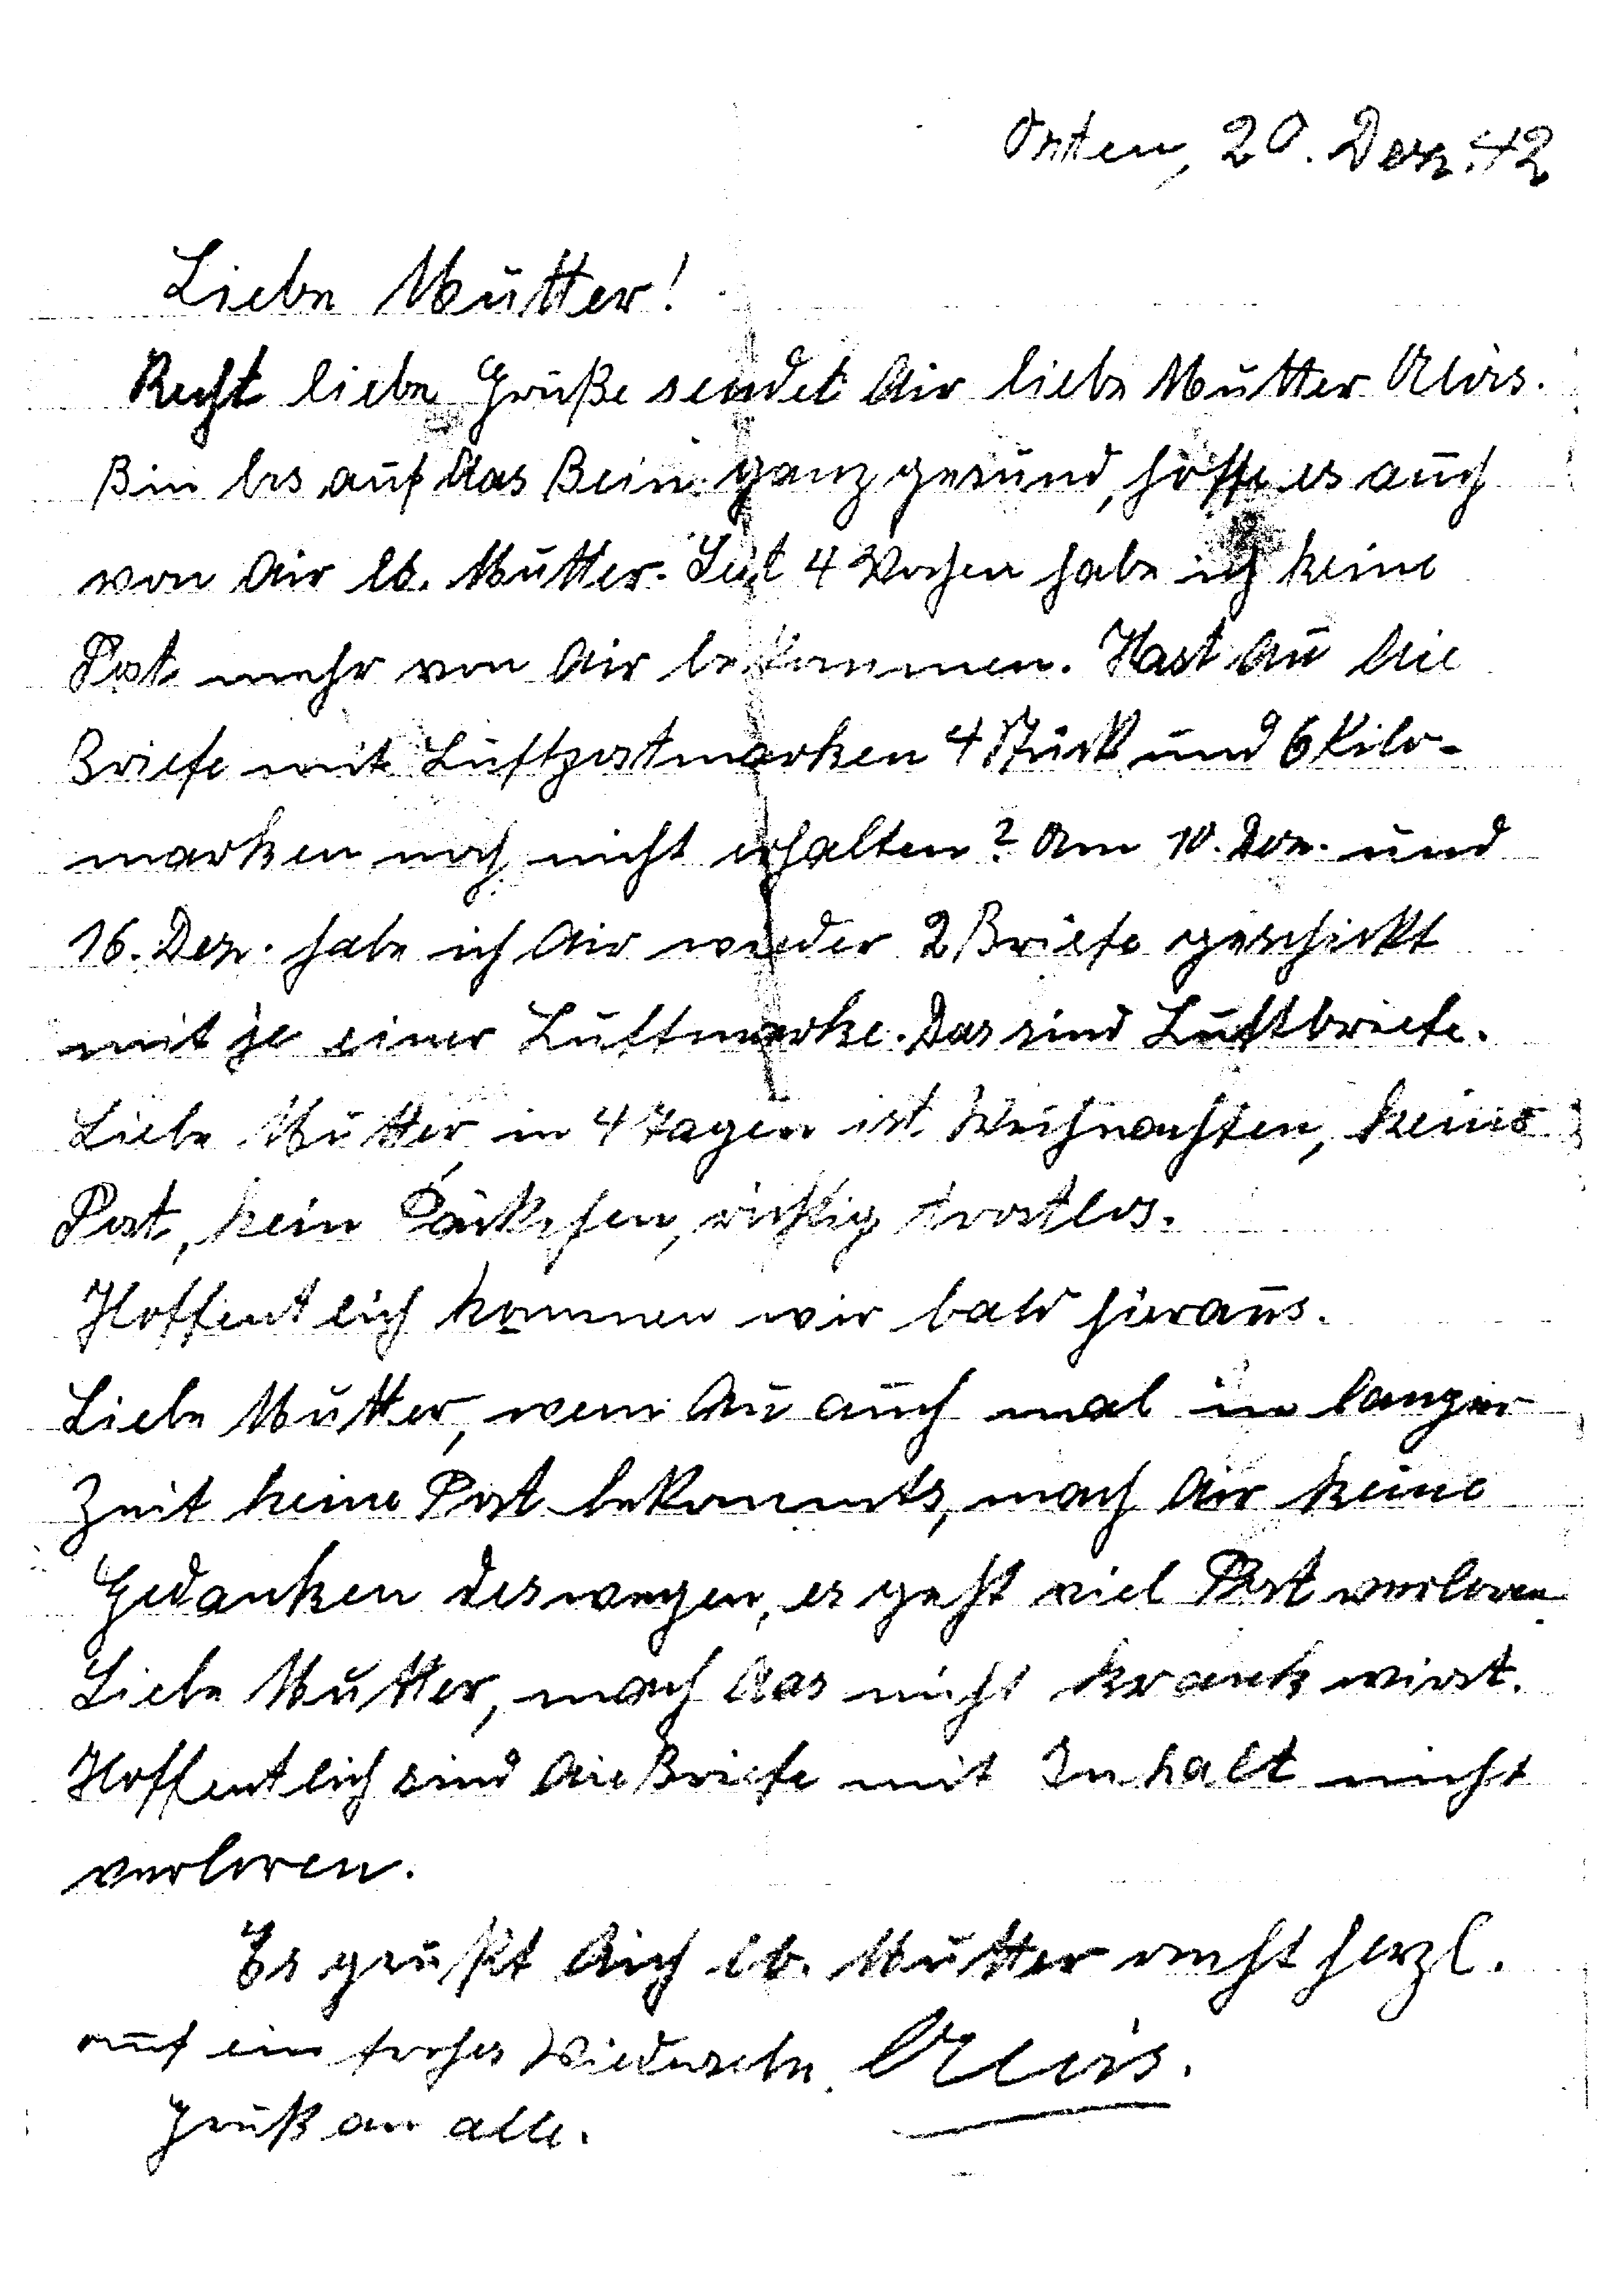 Osten, 20. Dez. 42
Liebe Mutter!
Recht liebe Grüße sendet Dir liebe Mutter Alois.
Bin bis auf das Bein ganz gesund, hoffe es auch
von Dir lb. Mutter. Seit 4 Wochen habe ich keine
Post mehr von Dir bekommen. Hast Du die
Briefe mit Luftpostmarken 4 Stück und 6 Kilo-
marken noch nicht erhalten? Am 10. Dez. und
16. Dez. habe ich Dir wieder 2 Briefe geschickt
mit je einer Luftmarke. Das sind Luftbriefe.
Liebe Mutter, in 4 Tagen ist Weihnachten, keine
Post, kein Päckchen, richtig trostlos.
Hoffentlich kommen wir bald hieraus.
Liebe Mutter, wenn Du auch mal in langer
Zeit keine Post bekommts, mach Dir keine
Gedanken deswegen, es geht viel Post verloren
Liebe Mutter, mach das nicht krank wirst.
Hoffentlich sind die Briefe mit Inhalt nicht
verloren.
Es grüßt Dich lb. Mutter recht herzl.
auf ein frohes Wiedersehn. Alois.
Gruß an alle.